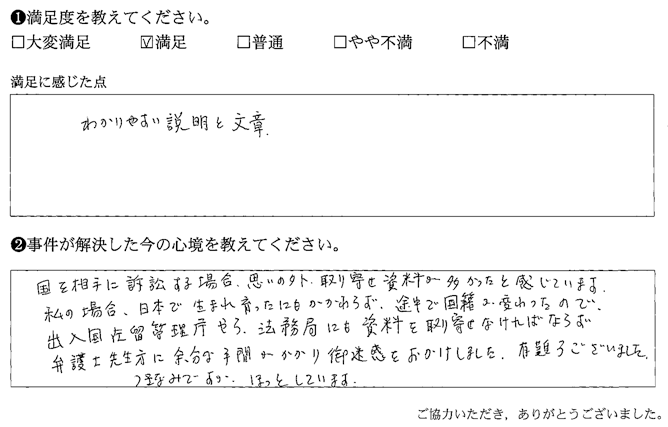 ❶満足度を教えてください。
□大変満足 ☑満足 □普通 □やや不満 □不満
満足に感じた点
わかりやすい説明と文章.
❷事件が解決した今の心境を教えてください。
国を相手に訴訟する場合、思いの外、取り寄せ資料が多かったと感じています.
私の場合、日本で生まれ育ったにもかかわらず、途中で国籍が変わったので、
出入国在留管理庁やら、法務局にも資料を取り寄せなければならず
弁護士先生方に余分な手間がかかり御迷惑をおかけしました. 有難うございました.
月なみですが、ほっとしています.
ご協力いただき，ありがとうございました。